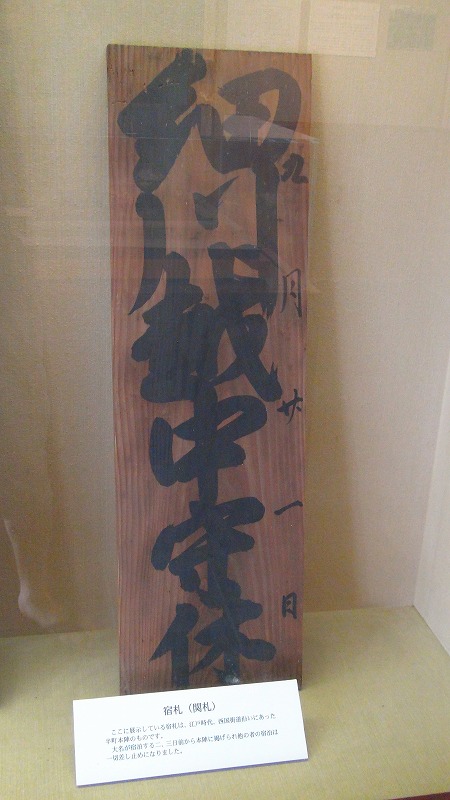 九月廿一日
細川越中守休
宿札（関札）
ここに展示している宿札は、江戸時代、西国街道沿いにあった
半町本陣のものです。
大名が宿泊する二、三日前から本陣に掲げられ他の者の宿泊は
一切差し止めになりました。